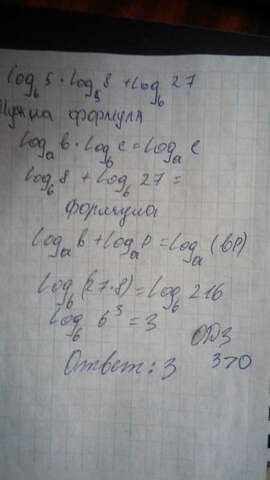 log₆5 · log₅8 + log₆27
Нужна формула
logₐb · log_b c = logₐc
log₆8 + log₆27 =
формула
logₐb + logₐp = logₐ(bp)
log₆(27·8) = log₆216
log₆6³ = 3
ОДЗ
Ответ: 3 3>0